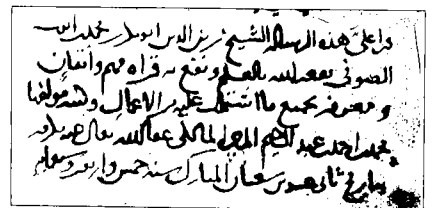 قرا علي هذه الرسالة الشيخ زين الدين ابو بكر بن محمد بن
الصوفي نفعه الله بالعلم ونفع به قراة فهم واتقان
ومعرفة بجميع ما اشتملت عليه من الاعمال وكتبه مولفها
محمد بن احمد بن عبد الرحيم المزي المالكي عفا الله تعالى عنه
بتاريخ ثاني شهر شعبان المبارك سنة خمس واربعين وسبعمايه